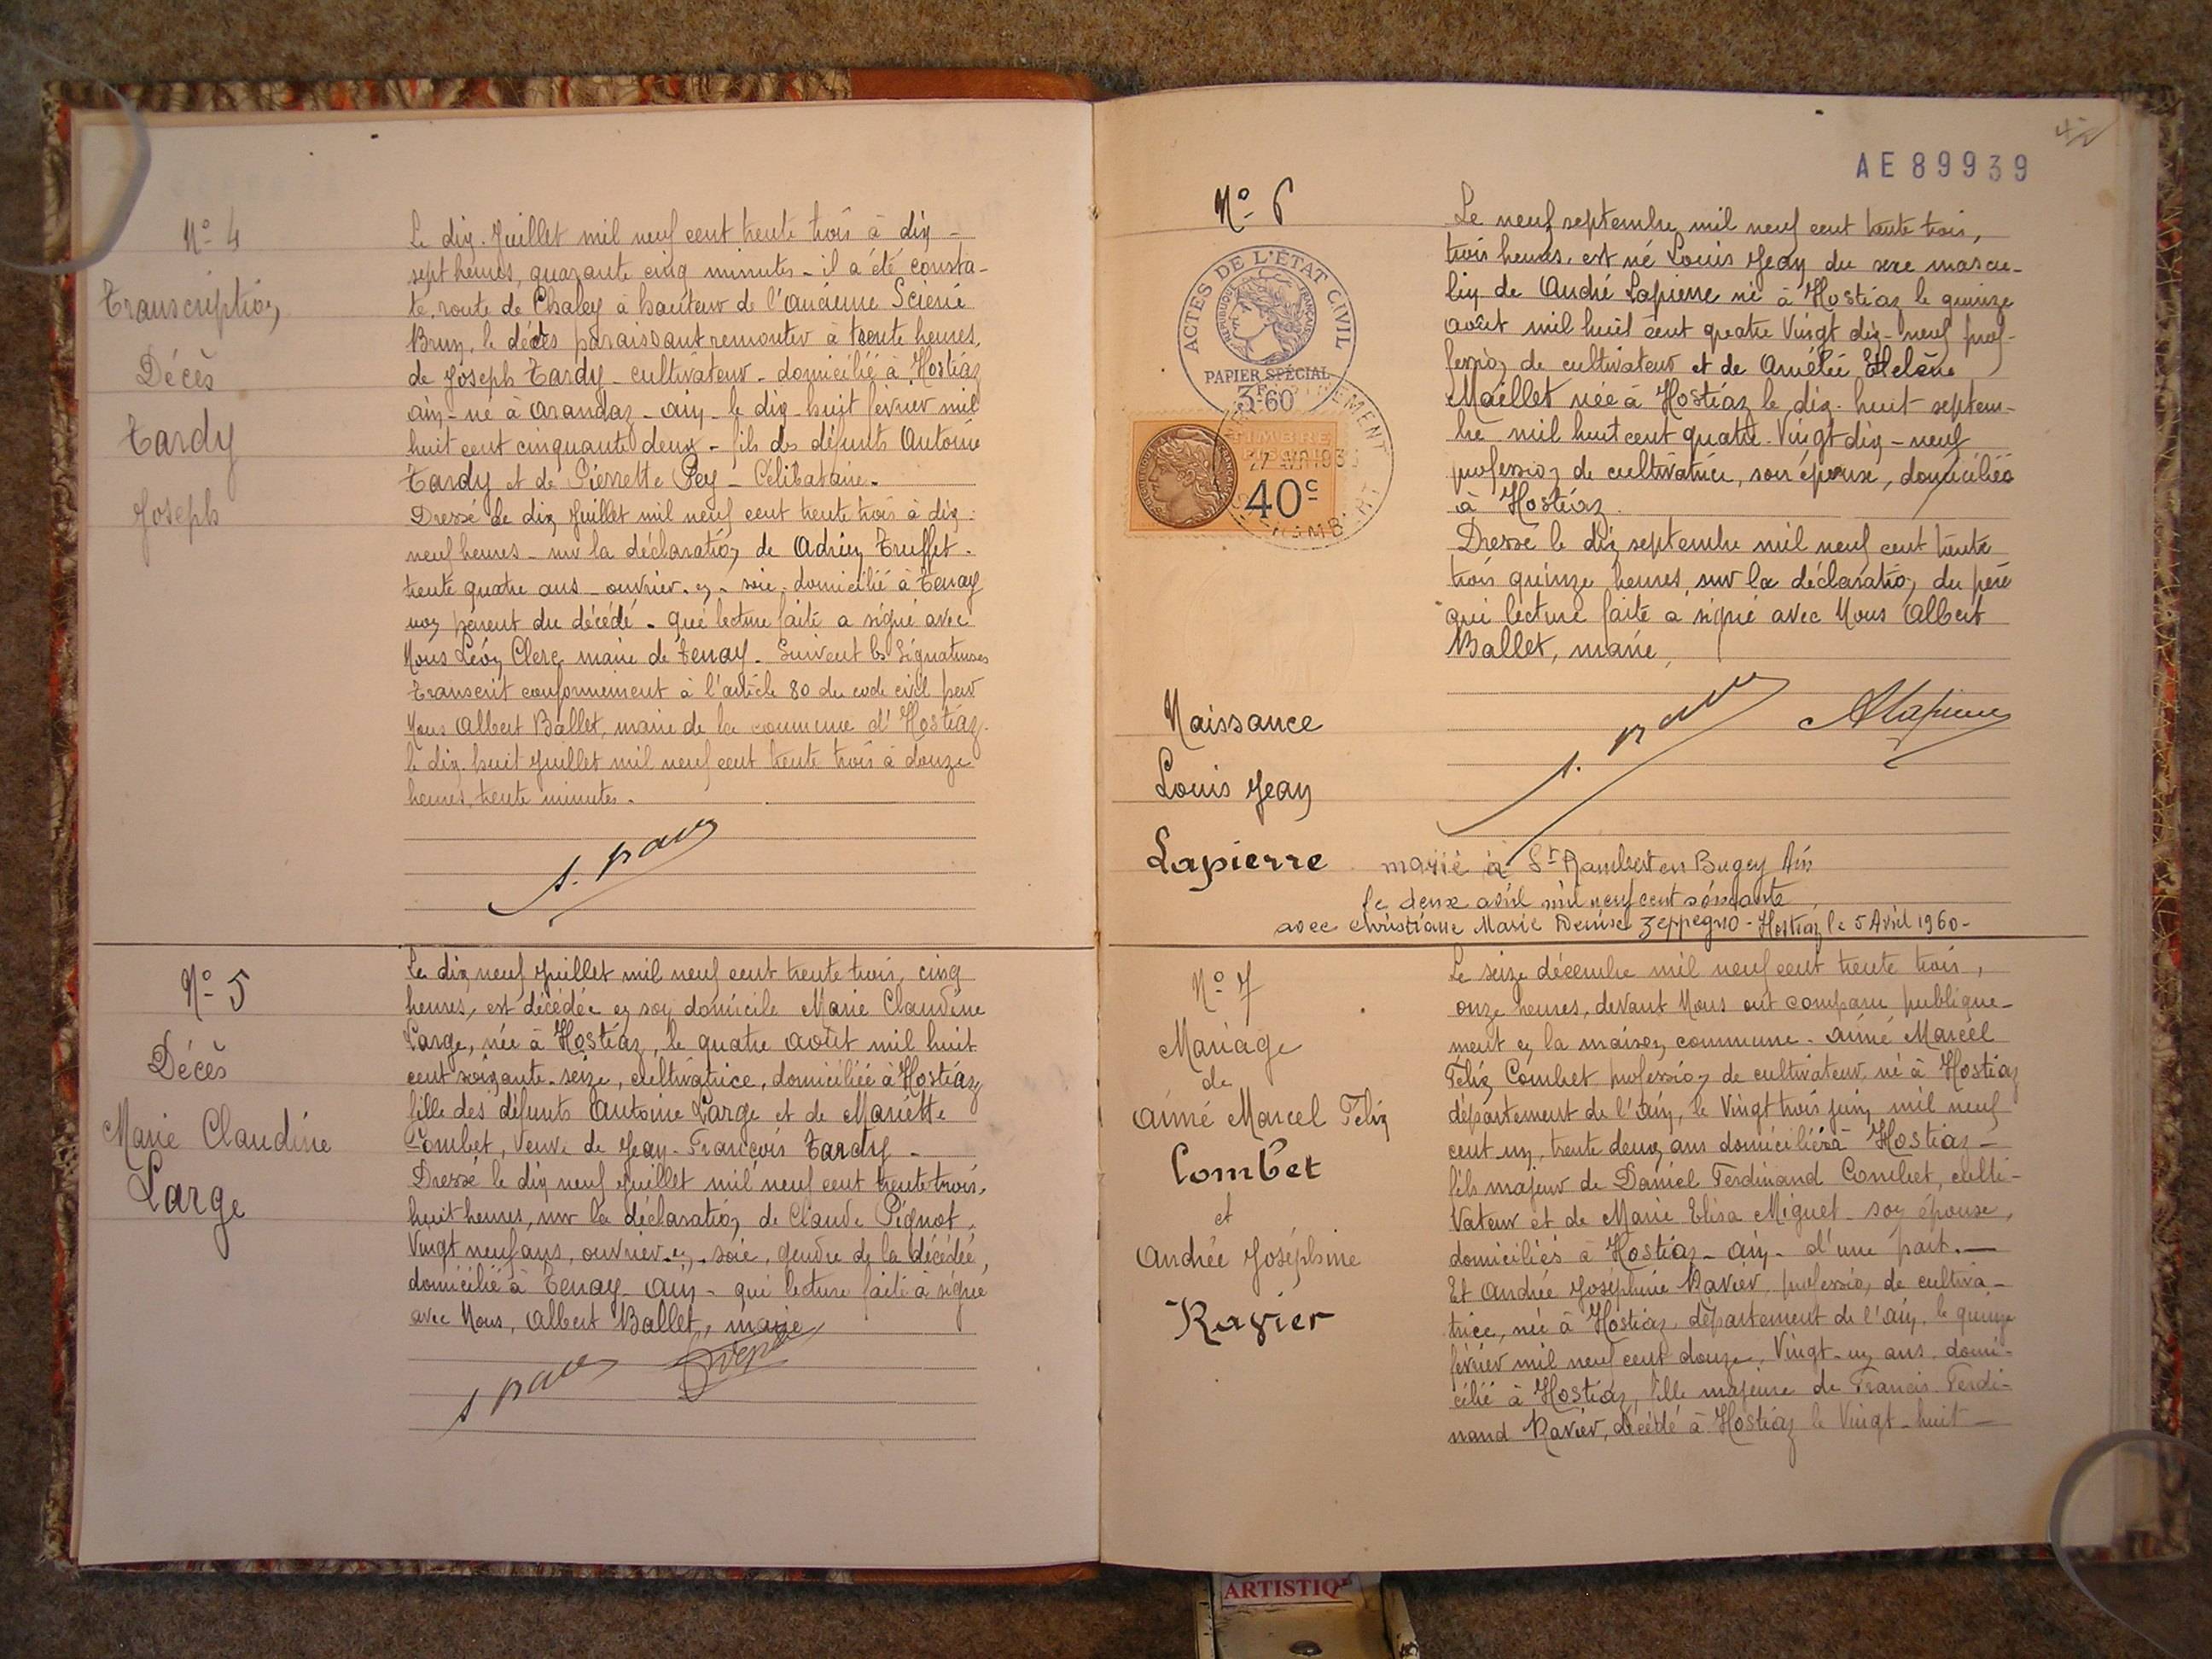 N° 4
Transcription
Décès
Tardy
Joseph
Le dix Juillet mil neuf cent trente trois à dix-
sept heures, quarante cinq minutes - il a été consta-
té, route de Chaley à hauteur de l'ancienne Scierie
Brun, le décès paraissant remonter à trente heures,
de Joseph Tardy - cultivateur - domicilié à Hostiaz
ain - né à Arandaz - ain - le dix-huit février mil
huit cent cinquante deux - fils des défunts Antoine
Tardy et de Pierrette Pey - Célibataire.
Dressé le dix Juillet mil neuf cent trente trois à dix-
neuf heures - sur la déclaration de Adrien Truffet.
trente quatre ans - ouvrier - en - soie - domicilié à Tenay
non parent du décédé - que lecture faite a signé avec
Nous Léon Clerc maire de Tenay. Suivent les Signatures
Transcrit conformément à l'article 80 du code civil par
Nous Albert Ballet, maire de la commune d'Hostiaz.
le dix-huit Juillet mil neuf cent trente trois à douze
heures, trente minutes.
N° 5
Décès
Marie Claudine
Large
Le dix neuf Juillet mil neuf cent trente trois, cinq
heures, est décédée en son domicile Marie Claudine
Large, née à Hostiaz, le quatre août mil huit
cent soixante-seize, cultivatrice, domiciliée à Hostiaz
fille des défunts Antoine Large et de Mariette
Combet, Veuve de Jean-François Tardy -
Dressé le dix neuf Juillet mil neuf cent trente trois,
huit heures, sur la déclaration de Claude Pignot,
Vingt neuf ans, ouvrier - en - soie, gendre de la décédée,
domicilié à Tenay - Ain - qui lecture faite a signé
avec Nous, Albert Ballet, maire
AE 89939
N° 6
ACTES DE L'ÉTAT CIVIL
RÉPUBLIQUE FRANÇAISE
PAPIER SPÉCIAL
3F60
TIMBRE
40c
Naissance
Louis Jean
Lapierre
Le neuf septembre mil neuf cent trente trois,
trois heures, est né Louis Jean du sexe mascu-
lin de André Lapierre né à Hostiaz le quinze
août mil huit cent quatre Vingt dix-neuf prof-
fession de cultivateur et de Amélie Hélène
Maillet née à Hostiaz le dix-huit septem-
bre mil huit cent quatre-Vingt dix-neuf
profession de cultivatrice, son épouse, domiciliés
à Hostiaz.
Dressé le dix septembre mil neuf cent trente
trois quinze heures, sur la déclaration du père
qui lecture faite a signé avec Nous Albert
Ballet, maire,
ALapierre
marié à St Rambert en Bugey Ain
le deux avril mil neuf cent soixante
avec Christiane Marie Denise Zeppegno - Hostiaz le 5 Avril 1960 -
N° 7
Mariage
de
Aimé Marcel Félix
Combet
et
Andrée Joséphine
Ravier
Le seize décembre mil neuf cent trente trois,
onze heures, devant Nous ont comparu publique-
ment en la maison commune - Aimé Marcel
Félix Combet, profession de cultivateur, né à Hostiaz
département de l'Ain, le Vingt trois juin mil neuf
cent un, trente deux ans domicilié à Hostiaz -
fils majeur de Daniel Ferdinand Combet, culti-
vateur et de Marie Elisa Miguet - son épouse,
domiciliés à Hostiaz - ain - d'une part. -
Et Andrée Joséphine Ravier, profession de cultiva-
trice, née à Hostiaz, département de l'ain, le quinze
février mil neuf cent douze, Vingt-un ans, domi-
cilié à Hostiaz, fille majeure de Francis Ferdi-
nand Ravier, décédé à Hostiaz le Vingt-huit -
ARTISTIQ